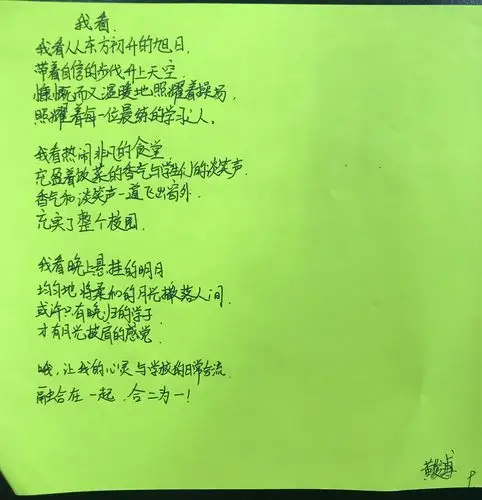 我看
我看从东方初升的旭日,
带着自信的步伐升上天空.
慷慨而又温暖地照耀着操场,
照耀着每一位晨练的学习人。
我看热闹非凡的食堂.
充盈着饭菜的香气与学生们的谈笑声.
香气和谈笑声一道飞出窗外.
充实了整个校园.
我看晚上悬挂的明月
均匀地将柔和的月光撒落人间.
或许只有晚归的学子
才有月光披肩的感觉.
哦,让我的心灵与学校的日常合流.
融合在一起,合二为一!